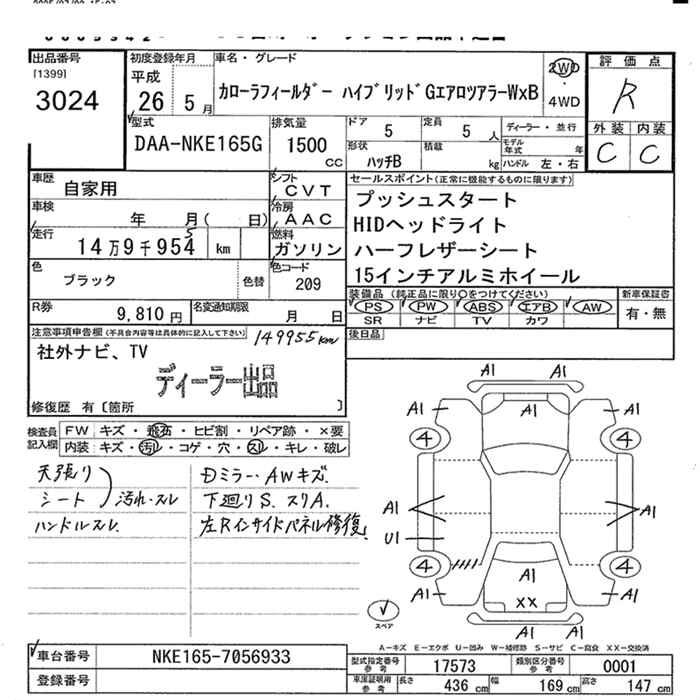 出品番号
[1399]
3024
初度登録年月
平成
26 5月
車名・グレード
カローラフィールダー ハイブリッドGエアロツアラーWxB
2WD
・
4WD
評価点
R
外装 内装
C C
型式
DAA-NKE165G
排気量
1500
CC
ドア 5
定員 5 人
形状 ハッチB
積載 kg
ディーラー・並行
モデル年式 年
ハンドル 左・右
車歴 自家用
シフト CVT
車検 年 月( 日)
冷房 AAC
走行 14万9千954 km
5
燃料 ガソリン
色 ブラック
色替
色コード 209
R券 9,810円
名変通知期限 月 日
セールスポイント(正常に機能するものに限ります)
プッシュスタート
HIDヘッドライト
ハーフレザーシート
15インチアルミホイール
装備品(純正品に限り○をつけてください)
PS PW ABS エアB AW
SR ナビ TV カワ
新車保証書
有・無
後日品
注意事項申告欄(不具合内容等は具体的に記入して下さい)
149955km
社外ナビ、TV
ディーラー出品
修復歴 有〔箇所 〕
検査員記入欄
FW キズ・飛石・ヒビ割・リペア跡・×要
内装:キズ・汚れ・コゲ・穴・スレ・キレ・破レ
天張り
シート 汚れ・スレ
ハンドルスレ
Dミラー・AWキズ.
下廻りS.スリA.
左Rインサイドパネル修復
A1 A1
A1 A1
4 4
A1 A1
U1
4 4
A1
A1 A1
XX
A1 A1
スペア
A－キズ E－エクボ U－凹み W－補修跡 S－サビ C－腐食 XX－交換済
車台番号 NKE165-7056933
登録番号
型式指定番号 参考 17573
類別区分番号 参考 0001
車庫証明用 参考 長さ 436 cm 幅 169 cm 高さ 147 cm